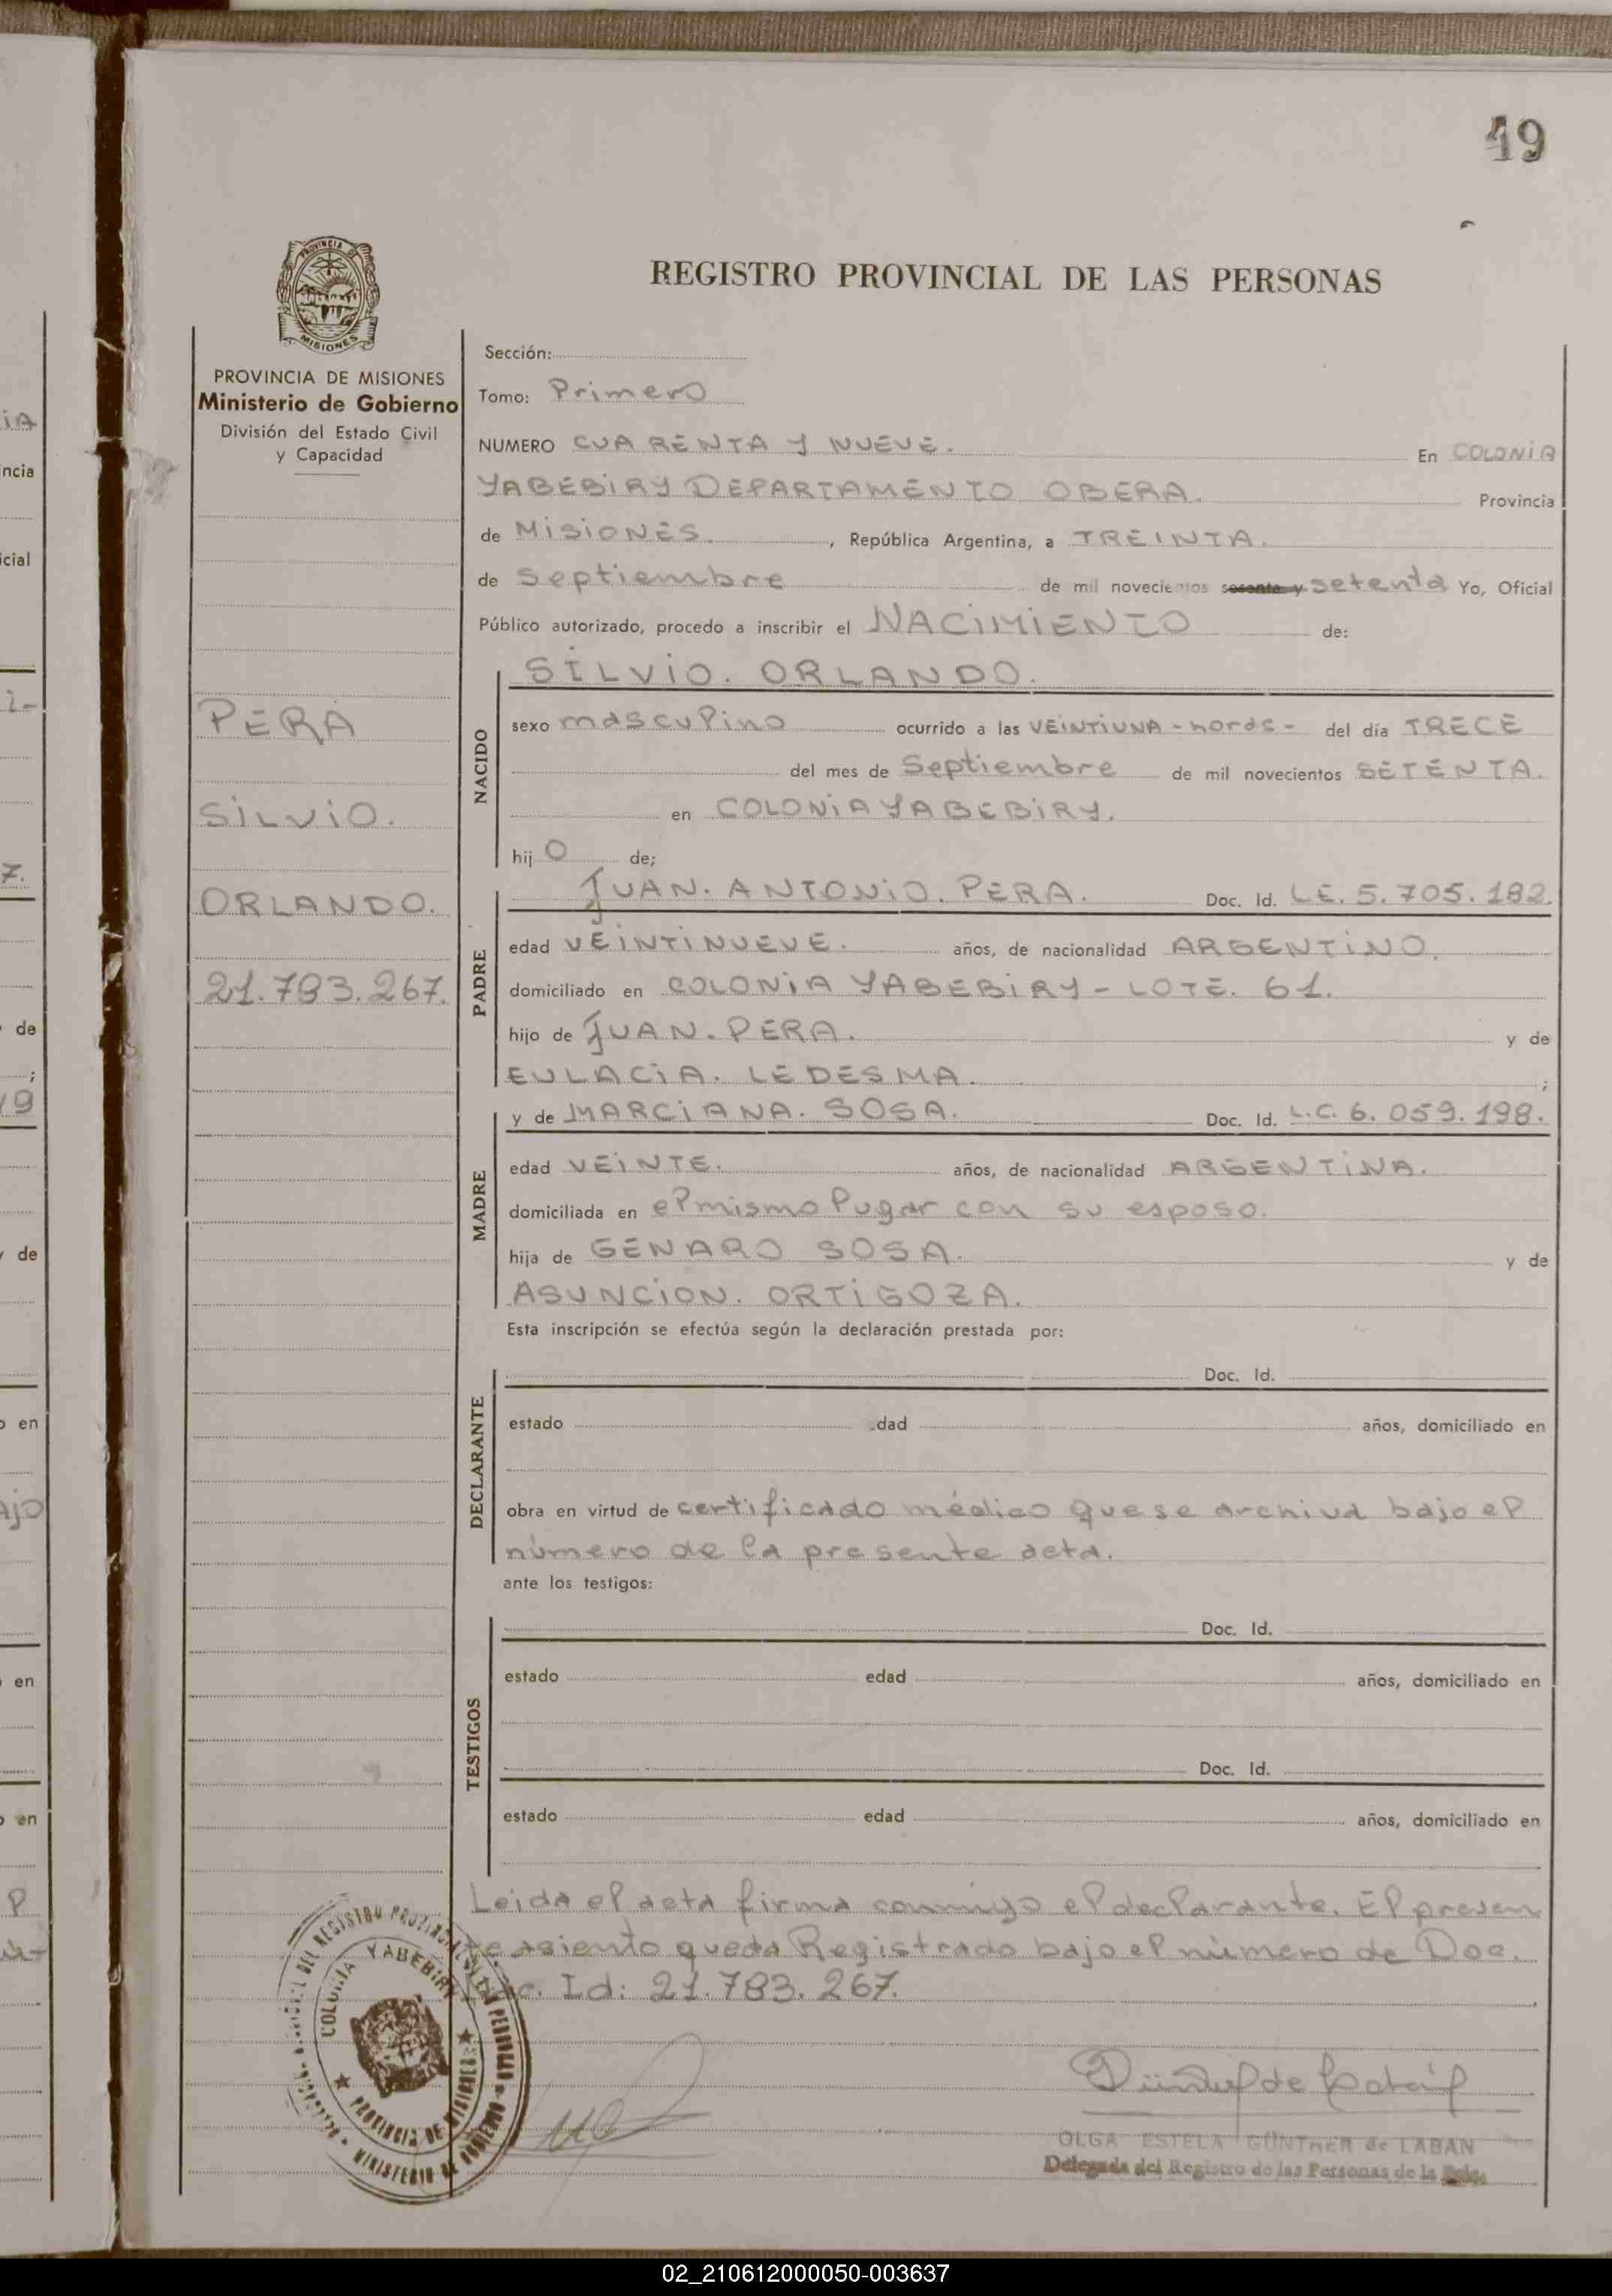 19
REGISTRO PROVINCIAL DE LAS PERSONAS
PROVINCIA DE
MISIONES
PROVINCIA DE MISIONES
Ministerio de Gobierno
División del Estado Civil
y Capacidad
PERA
SILVIO.
ORLANDO.
21.783.267.
Sección:
Tomo: Primero
NUMERO CUARENTA Y NUEVE. En COLONIA
YABEBIRY DEPARTAMENTO OBERA. Provincia
de MISIONES. , República Argentina, a TREINTA.
de Septiembre de mil novecientos sesenta y setenta Yo, Oficial
Público autorizado, procedo a inscribir el NACIMIENTO de:
NACIDO
SILVIO. ORLANDO.
sexo masculino ocurrido a las VEINTIUNA - horas - del día TRECE
del mes de Septiembre de mil novecientos SETENTA.
en COLONIA YABEBIRY.
hij O de;
PADRE
JUAN. ANTONIO. PERA. Doc. Id. L.E. 5.705.182.
edad VEINTINUEVE. años, de nacionalidad ARGENTINO.
domiciliado en COLONIA YABEBIRY - LOTE. 61.
hijo de JUAN. PERA. y de
EULACIA. LEDESMA. ;
MADRE
y de MARCIANA. SOSA. Doc. Id. L.C. 6.059.198.
edad VEINTE. años, de nacionalidad ARGENTINA.
domiciliada en el mismo lugar con su esposo.
hija de GENARO SOSA. y de
ASUNCION. ORTIGOZA.
Esta inscripción se efectúa según la declaración prestada por:
DECLARANTE
Doc. Id.
estado dad años, domiciliado en
obra en virtud de certificado médico que se archiva bajo el
número de la presente acta.
ante los testigos:
TESTIGOS
Doc. Id.
estado edad años, domiciliado en
Doc. Id.
estado edad años, domiciliado en
Leida el acta firma conmigo el declarante. El presen
te asiento queda Registrado bajo el número de Doc.
Id: 21.783.267.
COLONIA YABEBIRY
PROVINCIA DE MISIONES
MINISTERIO DE GOBIERNO
OLGA ESTELA GÜNTHER de LABAN
Delegada del Registro de las Personas de la
02_210612000050-003637